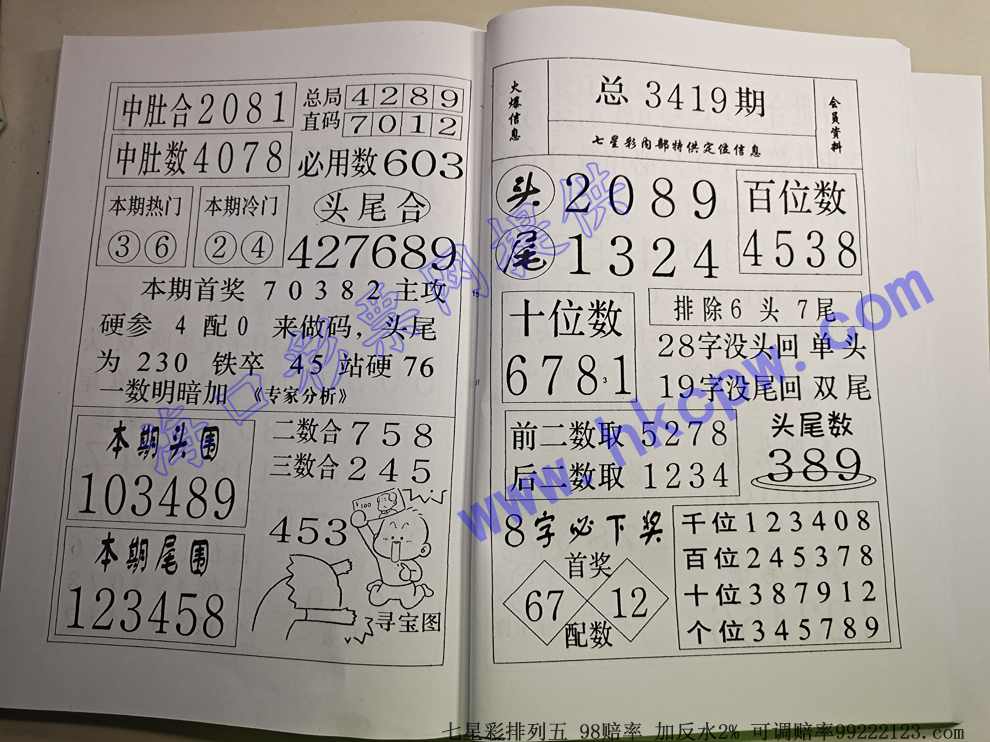 中肚合2081
总局 4289
直码 7012
中肚数4078
必用数603
本期热门
③⑥
本期冷门
②④
头尾合
427689
本期首奖 70382 主攻
硬参 4 配0 来做码，头尾
为 230 铁卒 45 站硬 76
一数明暗加 《专家分析》
本期头围
103489
二数合 758
三数合 245
453
100
本期尾围
123458
寻宝图
火爆信息
总 3419期
会员资料
七星彩内部特供定位信息
头 2089
尾 1324
百位数
4538
十位数
6781
3
排除6 头 7尾
28字没头回 单 头
19字没尾回 双 尾
前二数取 5278
后二数取 1234
头尾数
389
8字必下奖
首奖
67 12
配数
千位123408
百位245378
十位387912
个位345789
海口彩票网提供
www.hkcpw.com
七星彩排列五 98赔率 加反水2% 可调赔率99222123.com